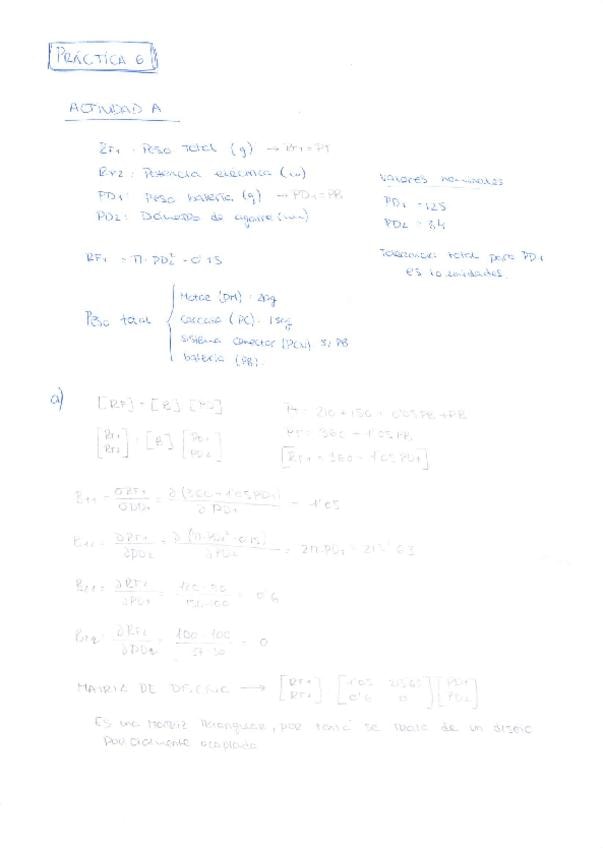 PRÁCTICA 6
ACTIVIDAD A
RF1: Peso total (g) → RF1 = PT
RF2: Potencia eléctrica (w)
PD1: Peso batería (g) → PD1 = PB
PD2: Diámetro de agarre (mm)
Valores nominales
PD1 = 125
PD2 = 34
RF1 = π · PD2² · 0'15
Tolerancia total para PD1
es 10 unidades.
Peso total
Motor (DM): 210g
Carcasa (PC): 150g
Sistema conector (PCN) 5% PB
batería (PB).
a)
[RF] = [B]
[RF1 RF2] = [B] [PD1 PD2]
PT = 210 + 150 + 0'05PB + PB
PT = 360 + 1'05PB
[RF1 = 360 + 1'05PD1]
B11 = ∂RF1/∂PD1 = ∂(360 + 1'05PD1)/∂PD1 = 1'05
B12 = ∂RF1/∂PD2 = ∂(π·PD2²·0'15)/∂PD2 = 2π·PD2 = 213'63
∂PD1 = 0'6
∂PD2 = 100-100 = 0
MATRIZ DE DISEÑO → [RF1 RF2] [1'05 213'63 0'6 0] [PD1 PD2]
Es una matriz triangular, por tanto se trata de un diseño
parcialmente acoplado